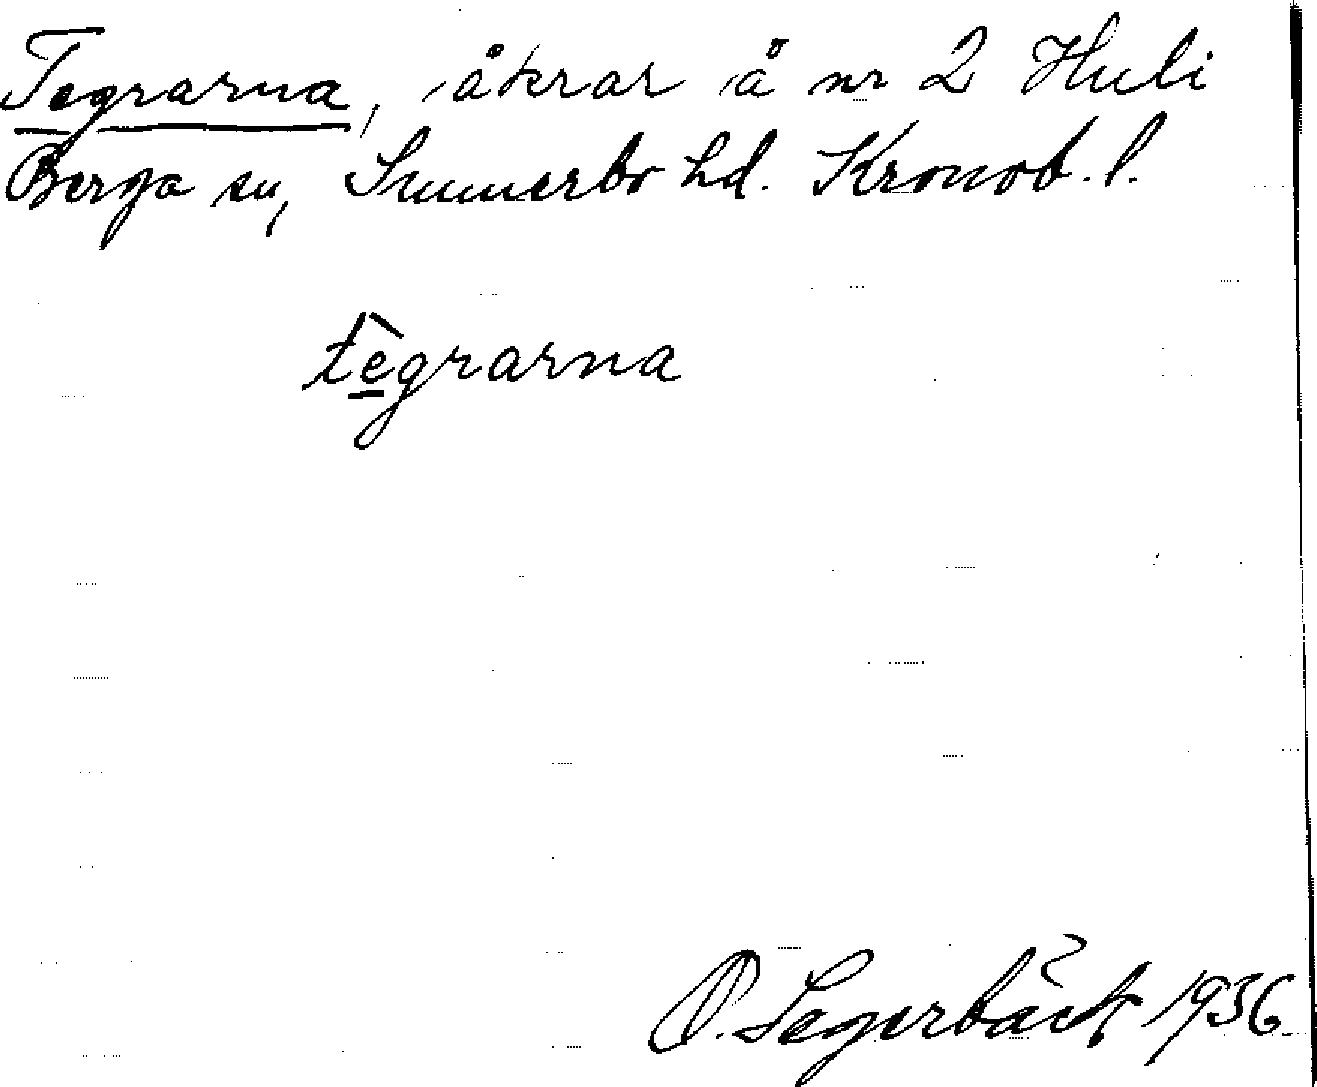 Tegrarna, åkrar å nr 2 Huli
Berga sn, Sunnerbo hd. Kronob. l.
tègrarna
O. Segerbäck 1936